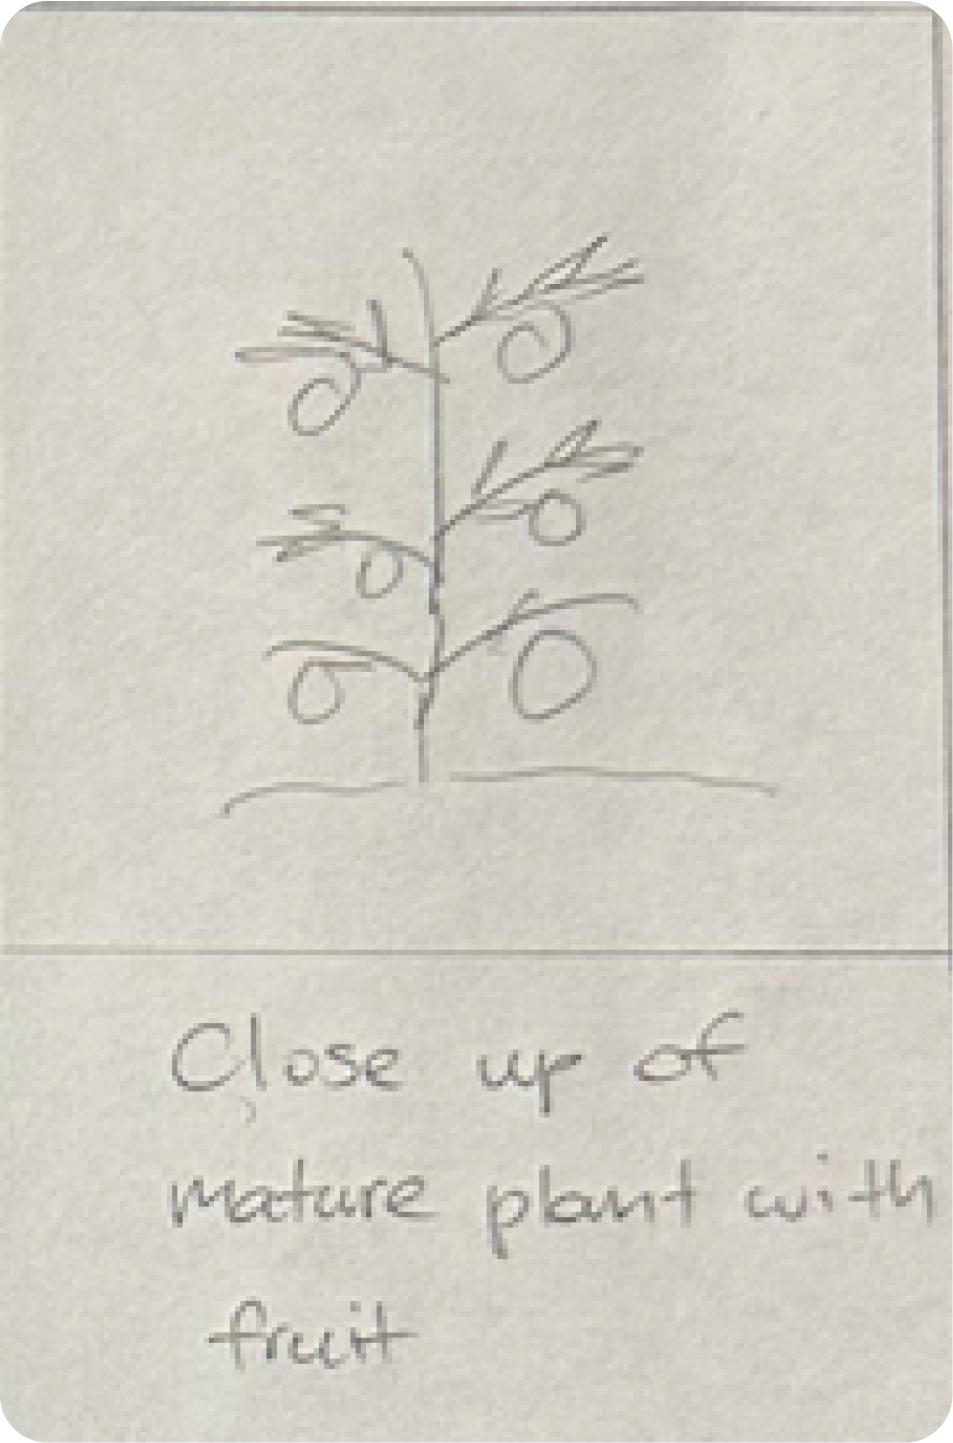 Close up of
mature plant with
fruit